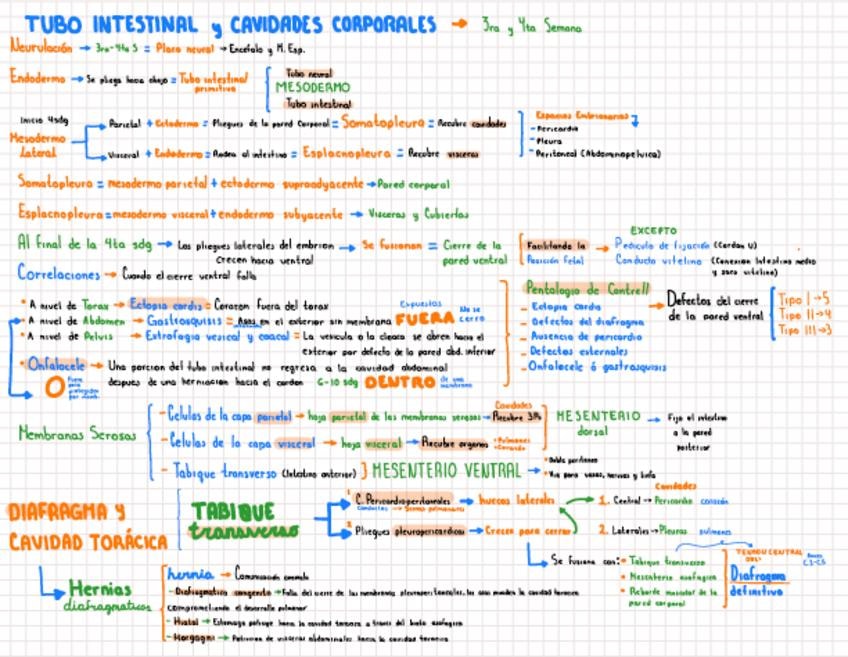 TUBO INTESTINAL y CAVIDADES CORPORALES → 3ra y 4ta Semana
Neurulación → 3ra-4ta S = Placa neural → Encéfalo y M. Esp.
Endodermo → Se pliega hacia abajo = Tubo intestinal primitivo
Tubo neural
MESODERMO
Tubo intestinal
Inicio 4sdg
Mesodermo Lateral
Parietal + Ectodermo = Pliegues de la pared Corporal = Somatopleura = Recubre cavidades
Visceral + Endodermo = Rodea al intestino = Esplacnopleura = Recubre visceras
Espacios Embrionarios
- Pericardia
- Pleura
- Peritoneal (Abdominopelvica)
Somatopleura = mesodermo parietal + ectodermo supraadyacente → Pared corporal
Esplacnopleura = mesodermo visceral + endodermo subyacente → Visceras y Cubiertas
Al final de la 4ta sdg → Los pliegues laterales del embrion crecen hacia ventral → Se fusionan = Cierre de la pared ventral
Facilitando la Posición Fetal
EXCEPTO
Pediculo de fijación (Cordon U)
Conducto vitelino (Conexion Intestino medio y saco vitelino)
Correlaciones → Cuando el cierre ventral falla
• A nivel de Torax → Ectopia cordis = Corazon fuera del torax
• A nivel de Abdomen → Gastrosquisis = Asas en el exterior sin membrana FUERA
Expuestas
No se cerro
• A nivel de Pelvis → Extrofia vesical y cloacal = La vesicula o la cloaca se abren hacia el exterior por defecto de la pared abd. inferior
• Onfalocele → Una porcion del tubo intestinal no regresa a la cavidad abdominal
despues de una herniacion hacia el cordon 6-10 sdg DENTRO de una membrana
O Fuera pero
Pentalogia de Cantrell
- Ectopia cordis
- Defectos del diafragma
- Ausencia de pericardio
- Defectos esternales
- Onfalocele ó gastrosquisis
Defectos del cierre de la pared ventral
Tipo I → 5
Tipo II → 4
Tipo III → 3
Membranas Serosas
- Celulas de la capa parietal → hoja parietal de las membranas serosas → Recubre
Cavidades
- Celulas de la capa visceral → hoja visceral → Recubre organos
• Pulmones
• Corazon
MESENTERIO dorsal → Fija el intestino a la pared posterior
- Tabique transverso (Intestino anterior) } MESENTERIO VENTRAL
• Doble peritoneo
• Via para vasos, nervios y linfa
DIAFRAGMA y CAVIDAD TORÁCICA
TABIQUE transverso
1 C. Pericardioperitoneales → huecos laterales
2 Pliegues pleuropericardicos → Crecen para cerrar
Cavidades
1. Central → Pericardio corazón
2. Laterales → Pleuras pulmones
Se fusiona con:
• Tabique transverso
• Mesenterio esofagico
• Reborde muscular de la pared corporal
TENDON CENTRAL DEL
Diafragma definitivo
C3-C5
Hernias diafragmaticas
hernia → Comunicación anomala
- Diafragmatica congenita → Falla del cierre de las membranas pleuroperitoneales, las asas invaden la cavidad toracica
comprometiendo el desarrollo pulmonar
- Hiatal → Estomago protruye hacia la cavidad toracica a traves del hiato esofagico
- Morgagni → Protrusion de visceras abdominales hacia la cavidad toracica